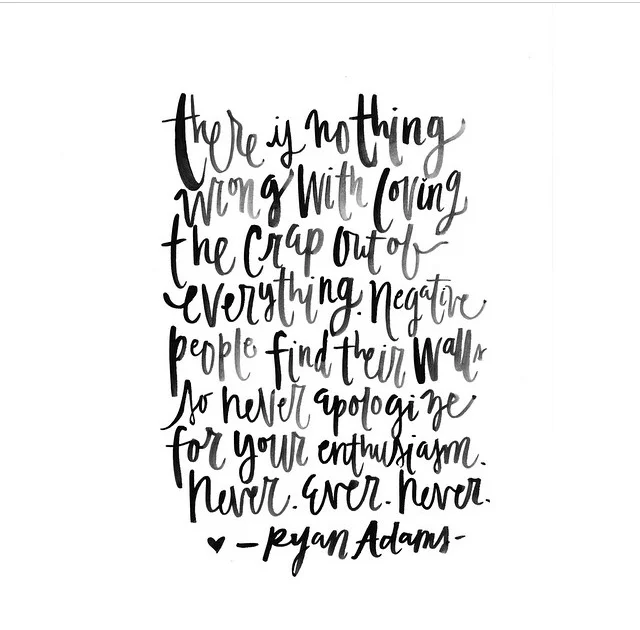 there is nothing
wrong with loving
the crap out of
everything. Negative
people find their walls
so never apologize
for your enthusiasm.
Never. Ever. Never.
♥ — Ryan Adams-